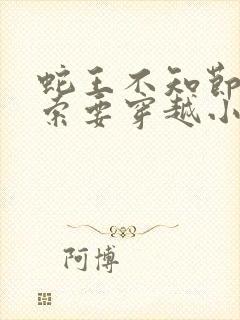 蛇王不知节
索要穿越小
阿博